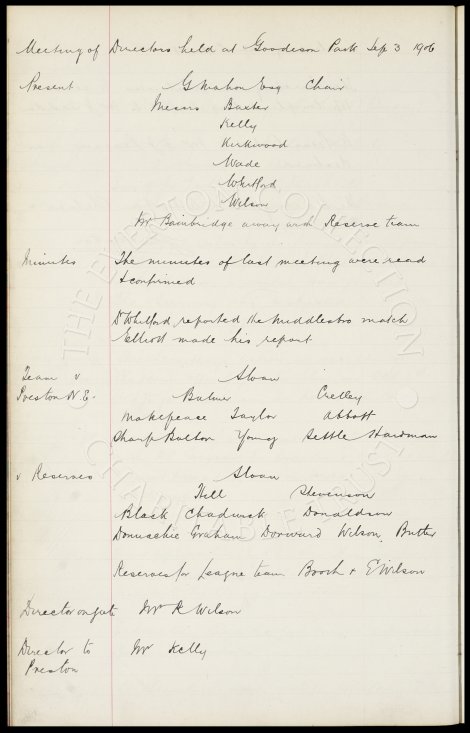 Meeting of Directors held at Goodison Park Sep 3 1906
Present G Mahon Esq Chair
Messrs Baxter
Kelly
Kirkwood
Wade
Whitford
Wilson
Mr Bainbridge away with Reserve team
Minutes The minutes of last meeting were read
& confirmed
Dr Whitford reported the Middlesbro match
Elliott made his report
Team v Sloan
Preston N.E. Balmer Crelley
Makepeace Taylor Abbott
Sharp Bolton Young Settle Hardman
v Reserves Sloan
Hill Stevenson
Black Chadwick Donaldson
Donnachie Graham Dorward Wilson, Butler
Reserves for League team Booth & E Wilson
Director on gate Mr R Wilson
Director to Mr Kelly
Preston
THE EVERTON COLLECTION
CHARITABLE TRUST